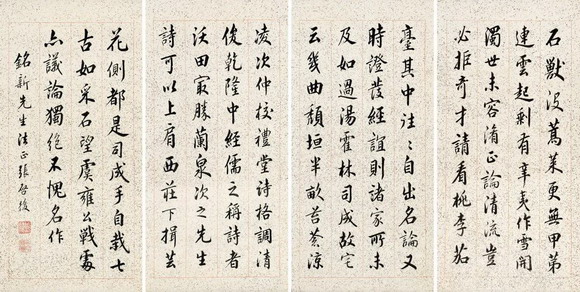 石獸沒蒿萊更無甲第
連雲起剩有辛夷作雪開
濁世未容淆正論清流豈
必拒奇才請看桃李茄
臺其中往〻自出名論又
時證發經誼則諸家所未
及如過湯霍林司成故宅
云幾曲頹垣半畝苔荒涼
凌次仲校禮堂詩格調清
俊乾隆中經儒之稱詩者
沃田冣勝蘭泉次之先生
詩可以上肩西莊下揖芸
花側都是司成手自栽七
古如采石望虞雍公戰處
亦議論獨絶不愧名作
銘新先生法正張啓後